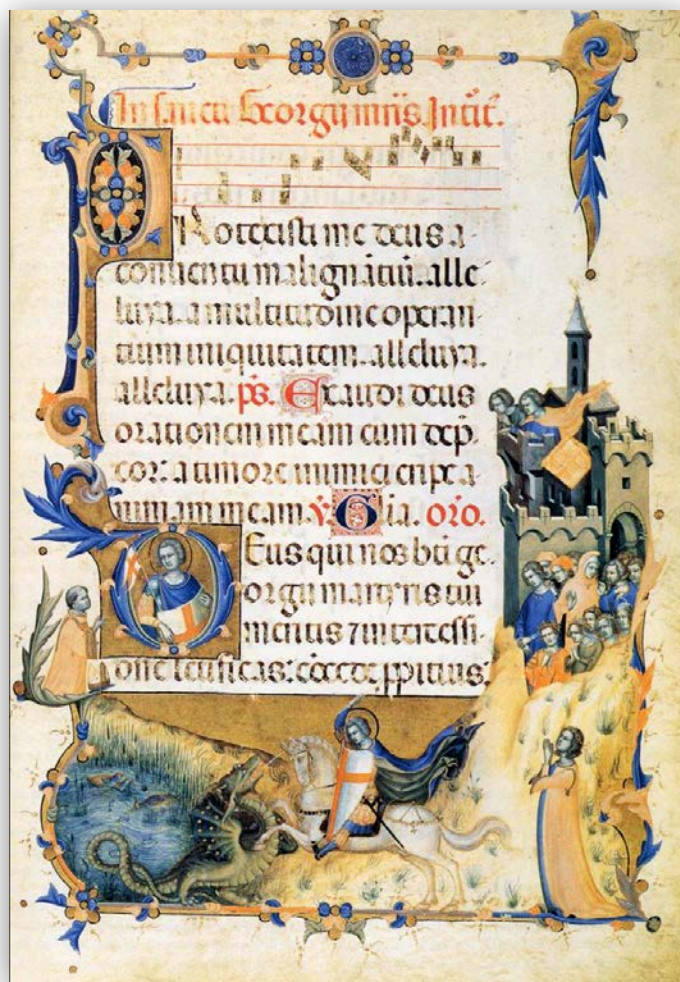 In sancti Georgij mr̄is. Introit̄.
PRotexisti me deus a
conuentu malignātiū. alle-
luya. a multitudine operan-
tium iniquitatem. alleluya.
alleluya. ps. Exaudi deus
orationem meam cum dep̄-
cor: a timore inimici eripe a-
nimam meam. v̄. Glīa. oro.
DEus qui nos bt̄i ge-
orgij martyris tui
meritis ⁊ intercessi-
one letificas: cōcede ꝓpitius: